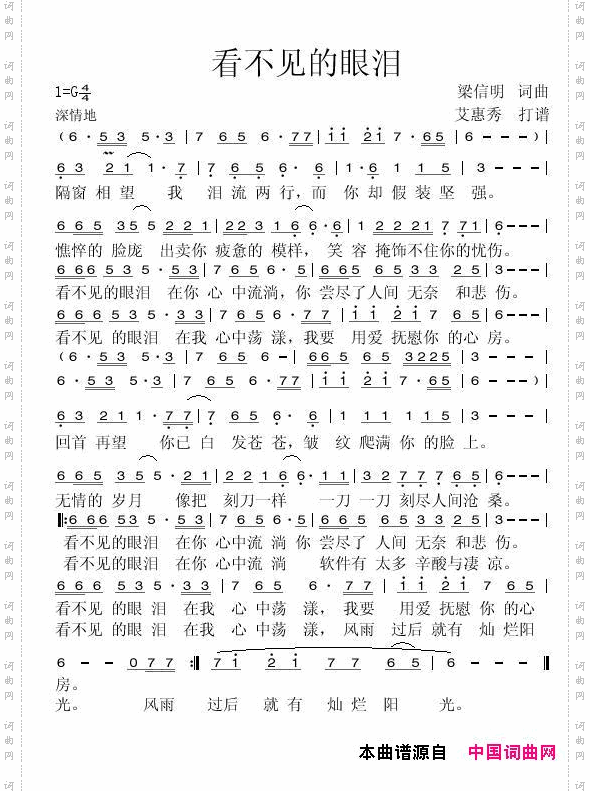 看不见的眼泪
1=G 4/4 梁信明 词曲
深情地 艾惠秀 打谱
(6 · 53 53 5 · 3 | 7 65 6 · 77 | 11 21 7 · 65 | 6 - - - )
63 21 1 · 7 | 765 65 6 · 6 | 1 · 6 1 15 | 3 - - -
隔窗 相 望 我 泪 流 两 行，而 你 却 假 装 坚 强。
665 355 221 | 223 166 6 · 6 | 1 2221 7 771 | 6 - - -
憔悴的 脸庞 出卖你 疲惫的 模样， 笑 容 掩饰不住你的忧伤。
666 535 5 · 33 | 765 6 · 6 | 6665 6533 25 | 3 - - -
看不见的眼泪 在你 心 中流淌，你 尝尽了人间 无奈 和悲 伤。
666 535 5 · 33 | 765 6 · 77 | 11 21 7 765 | 6 - - -
看不见 的眼 泪 在我 心中荡 漾，我要 用爱 抚慰你 的心 房。
(6 · 53 53 5 · 3 | 765 6 - | 6665 6553 3225 | 3 - - -
6 · 53 53 5 · 3 | 7 65 6 · 77 | 11 21 7 · 65 | 6 - - - )
63 211 1 · 77 | 7 65 6 · 6 | 1 11 115 | 3 - - -
回首 再望 你已 白 发苍 苍，皱 纹 爬满 你 的脸 上。
665 355 5 · 21 | 2216 6 · 1 | 32 777 765 | 6 - - -
无情的 岁月 像把 刻刀一样 一刀 一刀 刻尽人间沧 桑。
|:666 535 5 · 33 | 765 6 · 5 | 6665 6533 25 | 3 - - -
看不见的眼泪 在你 心中流 淌 你 尝尽了 人间 无奈 和悲 伤。
看不见的眼泪 在你 心中流 淌 软件有 太多 辛酸与凄 凉。
666 535 5 · 33 | 765 6 · 77 | 11 21 7 765
看不见 的眼 泪 在我 心 中荡 漾， 我要 用爱 抚慰 你 的心
看不见 的眼 泪 在我 心 中荡 漾， 风雨 过后 就有 灿 烂阳
6 - - 077 :| 71 21 77 65 | 6 - - - |
房。
光。 风雨 过后 就 有 灿 烂 阳 光。
本曲谱源自 中国词曲网